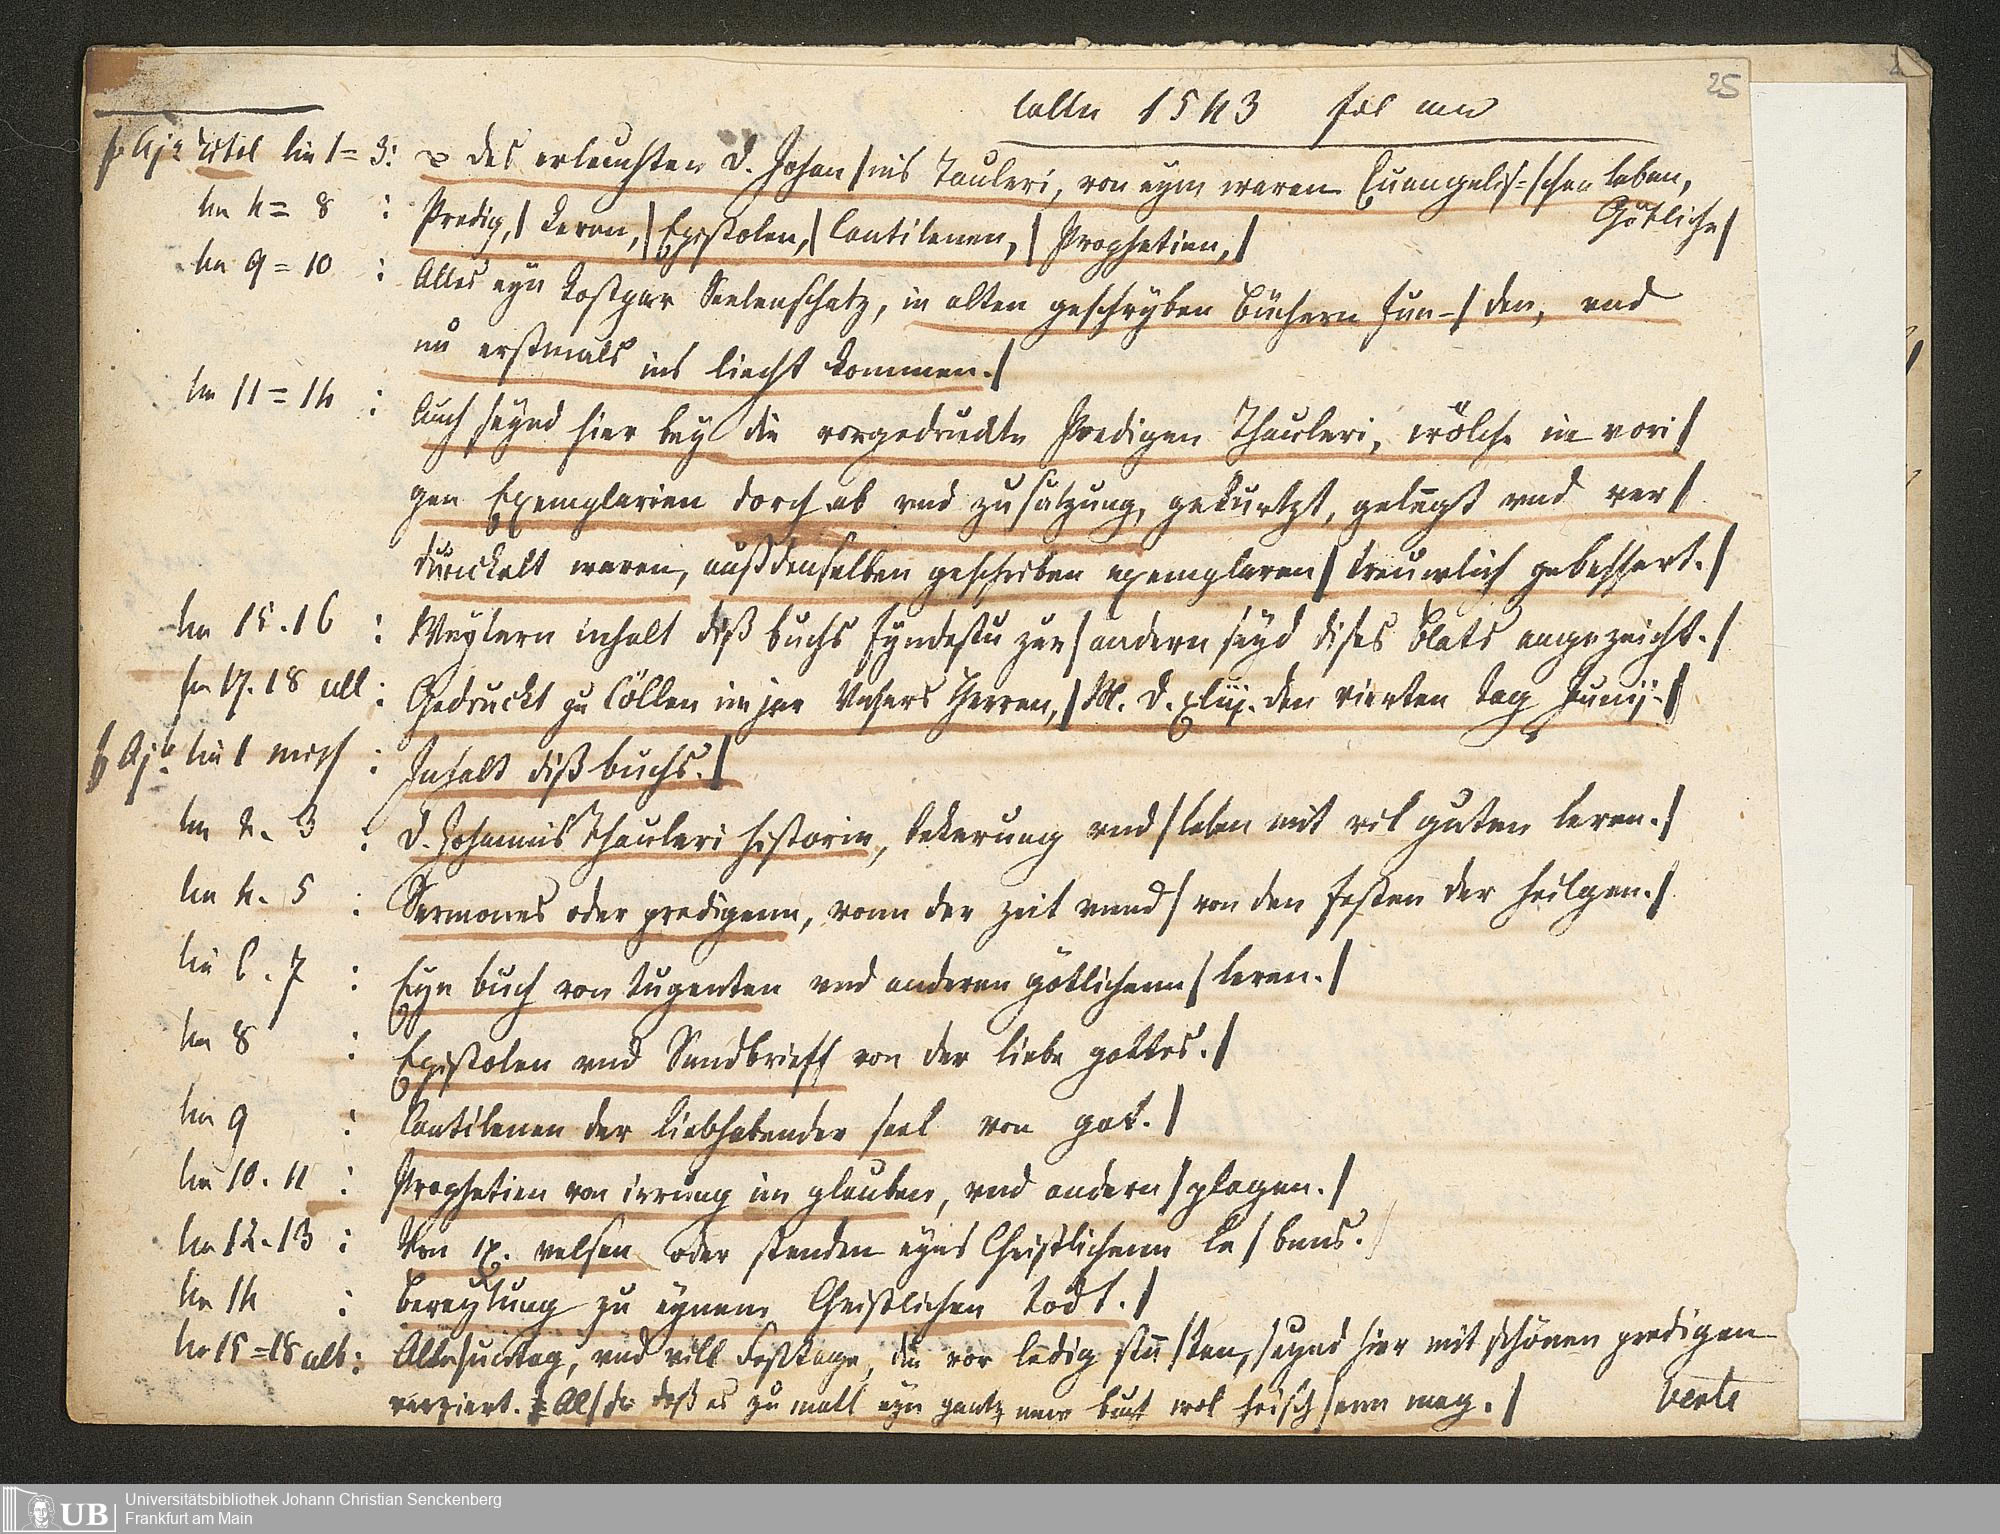 25
Cölln 1543 fol
f Aja Titel lin 1=3: des erleuchten D. Johan/nis Tauleri, von eym waren Euangelis=/schen leben,
lin 4=8 : Predig,/ Leren,/ Epistolen,/ Cantilenen,/ Prophetien,/ Götliche/
lin 9=10 : Alles eyn kostpar Seelenschatz, in alten geschryben Büchern fun-/den, vnd
nu erstmals ins liecht kommen./
lin 11=14 : Auch seynd hier bey die vorgedruckte Predigen Thauleri, wölche in vori/
gen Exemplarien dorch ab vnd zusatzung, gekurtzt, gelengst vnd ver/
dunckelt waren, auß denselben geschriben exemplaren/ treuwlich gebessert./
lin 15.16 : Weytern inhalt diß buchs fyndestu zur/ andern seyd dises Blats angezeicht./
lin 17.18 ult : Gedruckt zu Cöllen im jar Vnsers Herren,/ M. D. xliij. den vierten tag Junij./
f Ajb lin 1 : Inhalt diß buchs./
lin 2.3 : D. Johannis Thauleri historie, bekerung vnd/ leben mit vil guten leren./
lin 4.5 : Sermones oder predigenn, vonn der zeit vnnd/ von den festen der heilgen./
lin 6.7 : Eyn buch von tugenten vnd anderen götlichenn/ leren./
lin 8 : Epistolen vnd Sendbrieff von der liebe gottes./
lin 9 : Cantilenen der liebhabender seel von got./
lin 10.11 : Prophetien von irrung im glauben, vnd andern/ plagen./
lin 12.13 : Von ix. velsen oder stenden eyns Christlichenn le/bens./
lin 14 : Bereytung zu eynem Christlichen todt./
lin 15=18 alb: Alle suntag, vnd vill festtage, die vor ledig stu/sten, seynd hier mit schönen predigen
verziert. Al/so daß es zu mall eyn gantz new buch wol heisch/senn mag./ verte
UB
Universitätsbibliothek Johann Christian Senckenberg
Frankfurt am Main